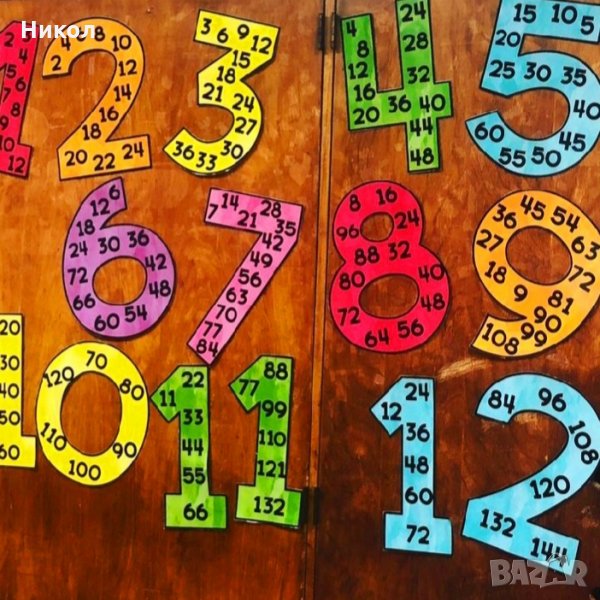 Никол
2
4
5
6
7
8
9
10
12
2 4 6 8 10
12
14
16
18
20 22 24
3 6 9 12
15
18
21 24
27
30
33
36
4
8
12
16
20 24
28
32
36 40
44
48
5
10
15
20
25 30 35
40
45
50
55
60
6
12
18
24 30 36
42
48
54
60
66
72
7 14 21 28
35
42
49
56
63
70
77
84
8 16
24
32
40
48
56
64
72
80
88
96
9
18
27
36
45 54
63
72
81
90
99
108
20
30
40
50
60
70
80
90
100
110
120
11 22
33
44
55
66
77 88
99
110
121
132
12 24
36
48
60
72
84 96
108
120
132
144
BAZAR